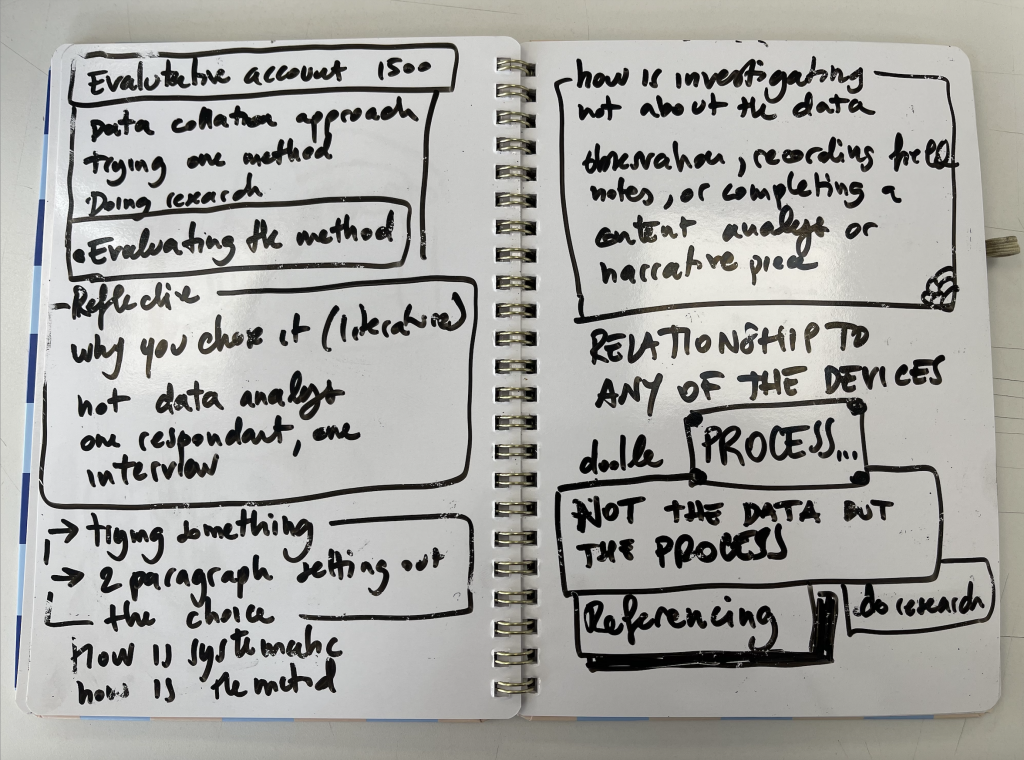 Evalutative account 1500
Data collation approach
trying one method
Doing research
• Evaluating the method
- Reflective
why you chose it (literatures)
not data analyst
one respondant, one
interview
→ trying something
→ 2 paragraph setting out
the choice
How is systematic
how is the metod
how is investigating
not about the data
observation, recording field
notes, or completing a
content analyst or
narrative piece
RELATIONSHIP TO
ANY OF THE DEVICES
doodle PROCESS...
NOT THE DATA BUT
THE PROCESS
Referencing
do research